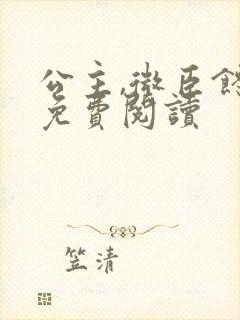 公主,微臣
免費閱讀
笠清